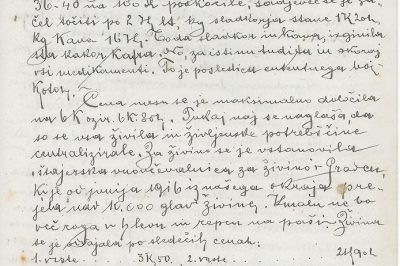 36-40 na 100 K poskočile,
čel točiti po 2 K lit., kg sladkorja stane 1 K 20 h
kg Kave 16 K. Toda sladkor in Kava, izginila
sta kakor Kafra, za istimi tudi in skoraj
vsi medikamenti. To je posledica ententnega boj-
kotov.
Cena mesu se je maksimalno določila
na 6 K ozir. 6 K. 80 h. Tukaj naj se naglaša, da
so se vsa živila in življenske potrebščine
centralizirale. Za živino se je vstanovila
štajerska vnovčevalnica za živino v Gradcu,
ki je od junija 1916 iz našega okraja pre-
jela nad 10.000 glav živine. Kmalu ne bo
več roga v hlevu in repca na paši. Živina
se je oddajala po sledečih cenah:
1. vrste 3 K 50, 2. vrste